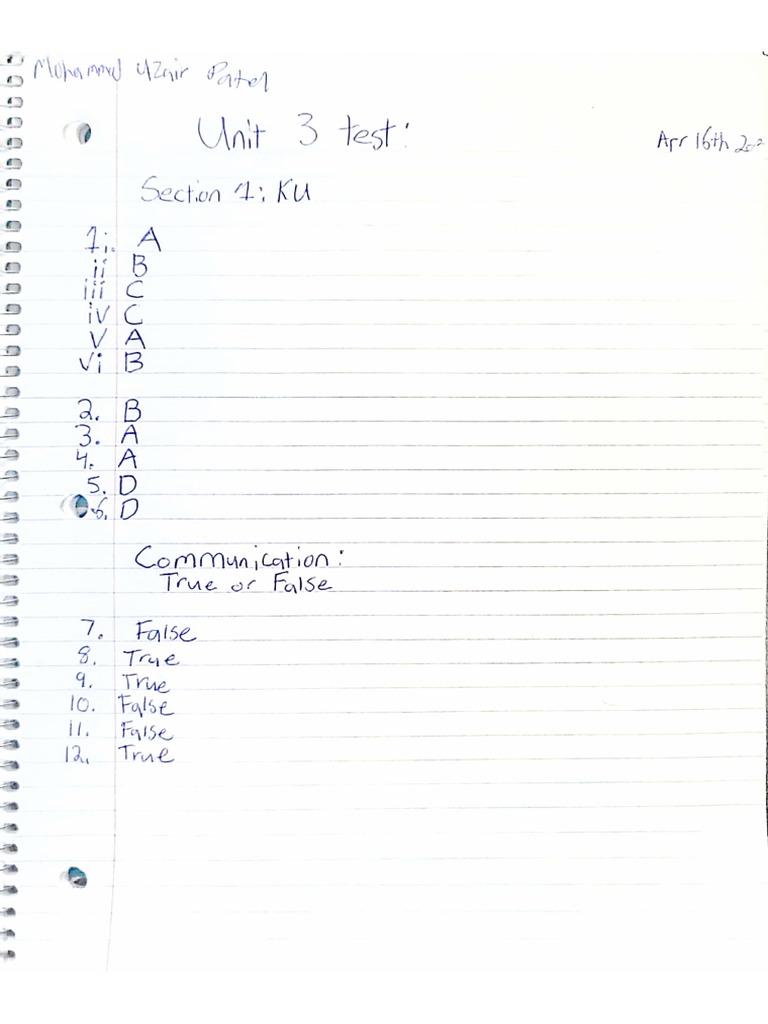 Mohammed Uzair Patel
Unit 3 test:
Apr 16th
Section 1: KU
1i. A
ii B
iii C
iv C
v A
vi B
2. B
3. A
4. A
5. D
6. D
Communication:
True or False
7. False
8. True
9. True
10. False
11. False
12. True